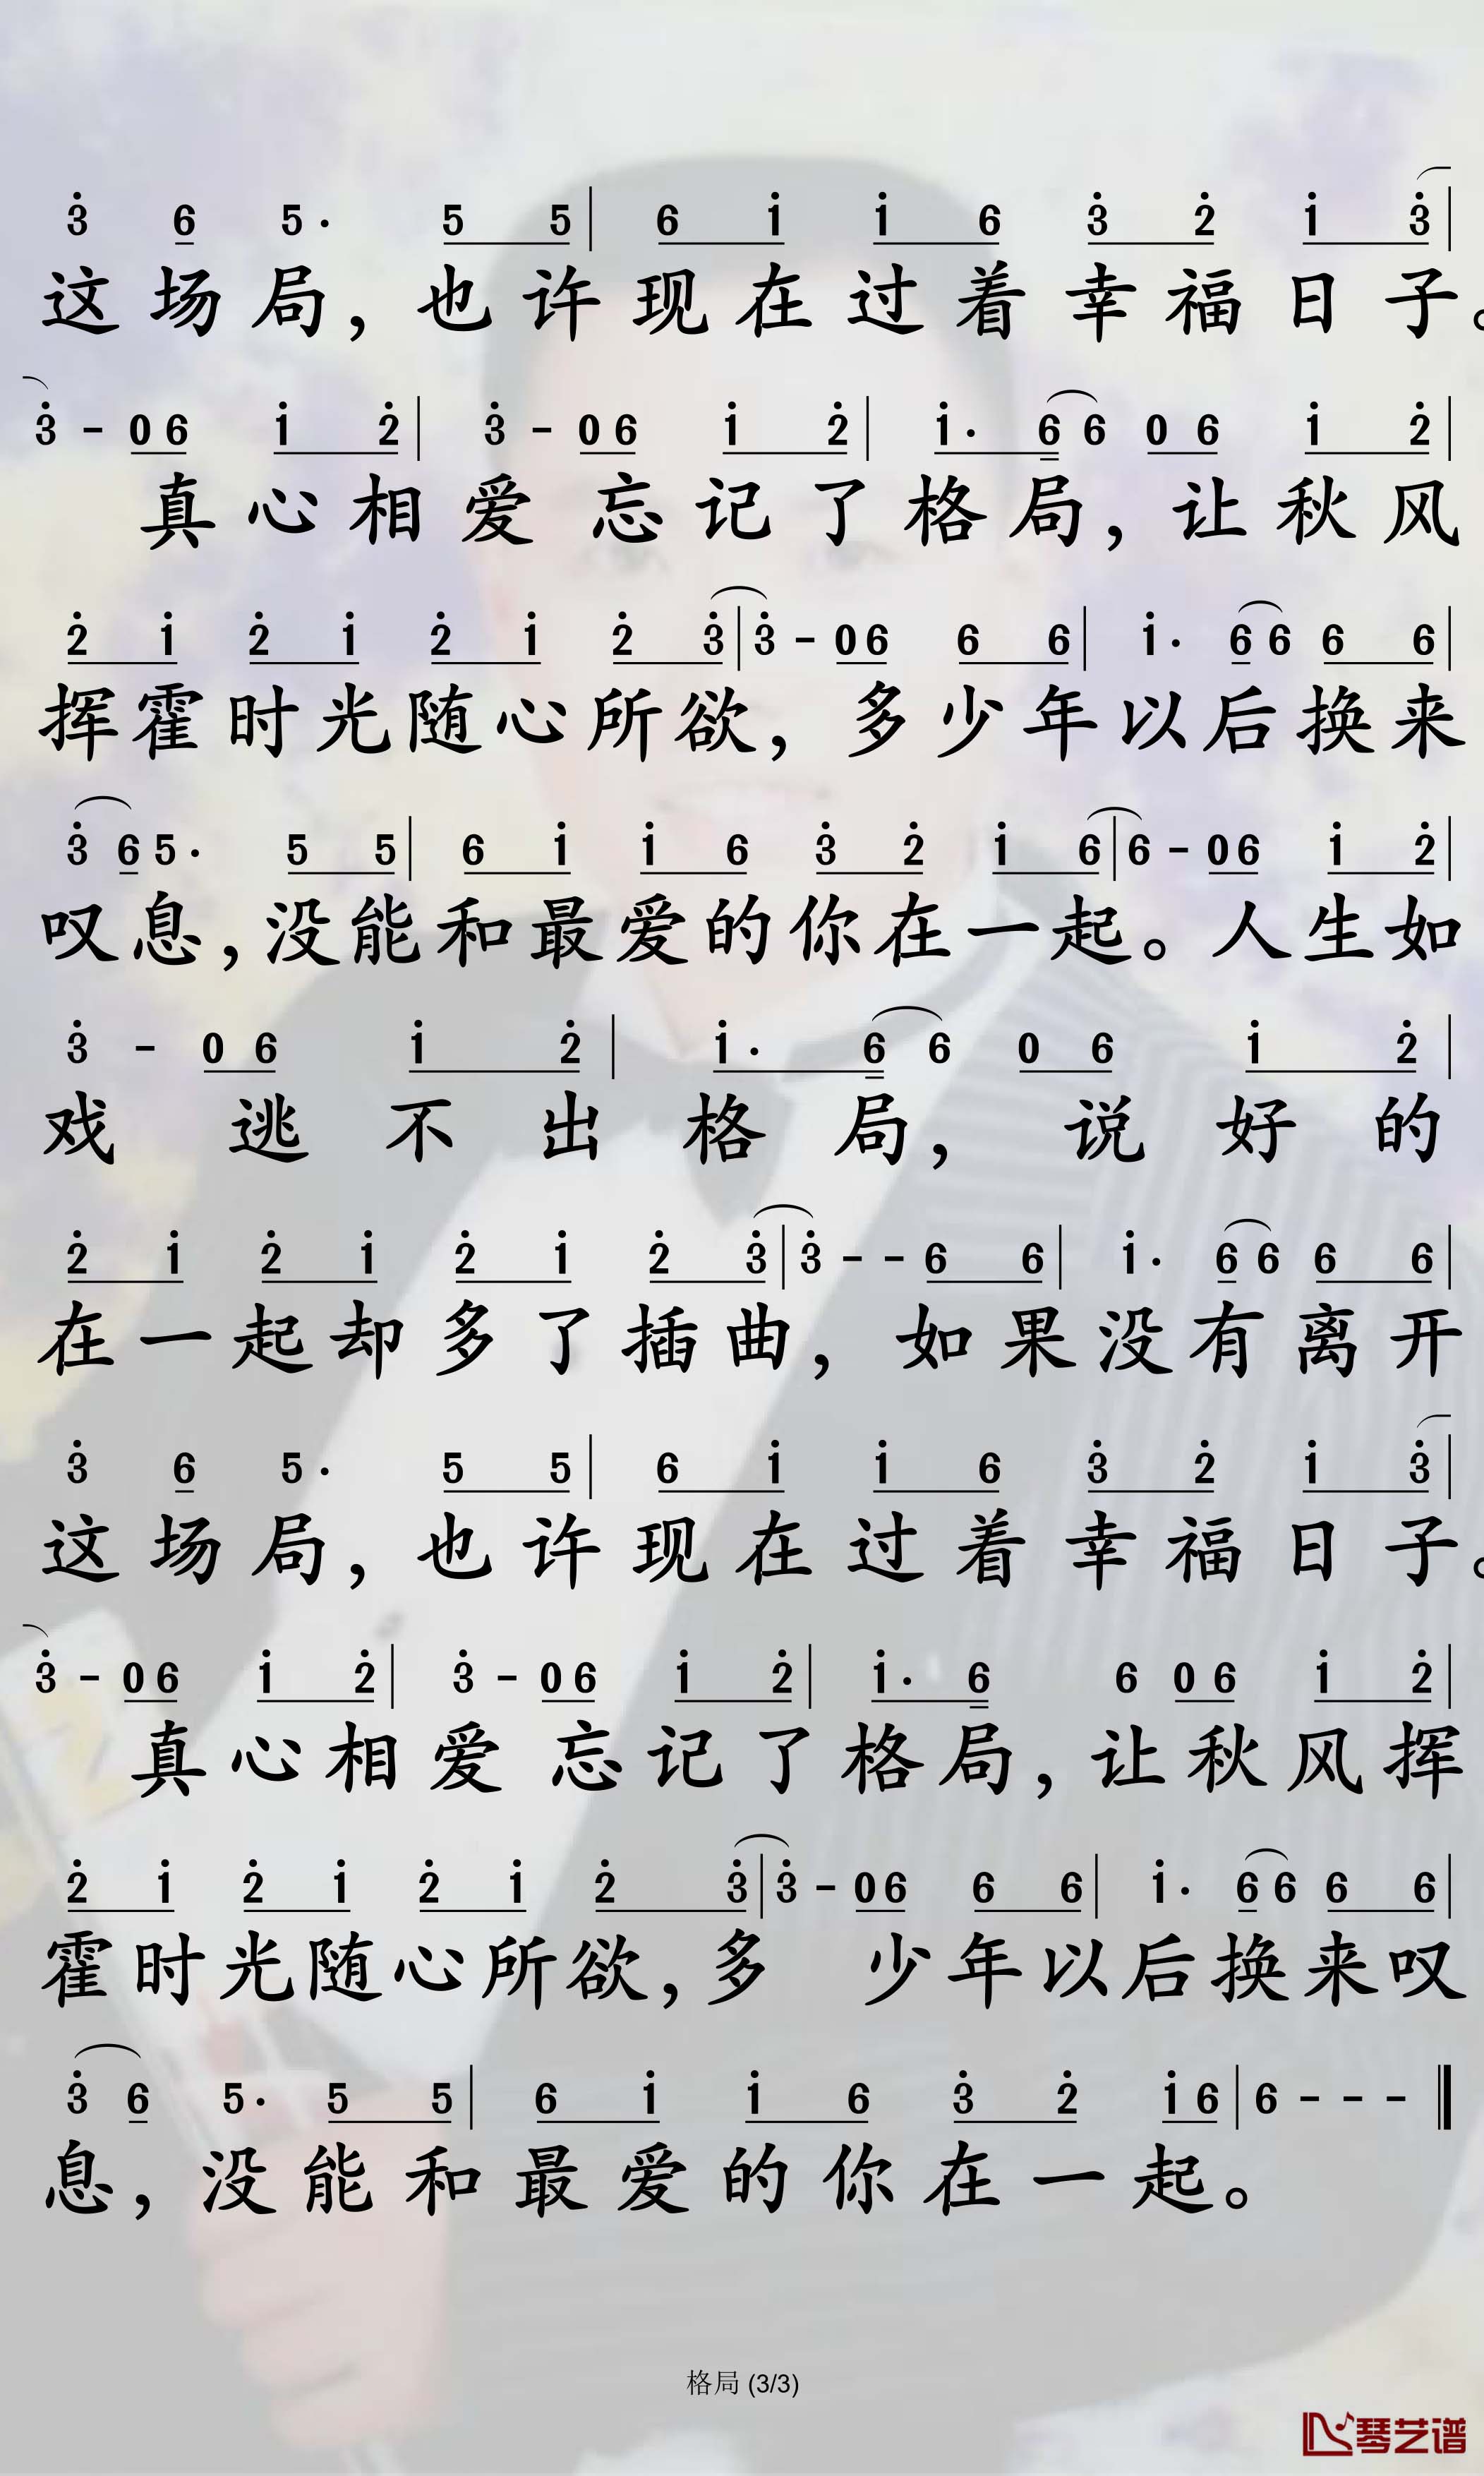 3̇ 6 5· 5 5 | 6 1̇ 1̇ 6 3̇ 2̇ 1̇ 3̇ |
这场局，也许现在过着幸福日子。
3̇ - 0 6 1̇ 2̇ | 3̇ - 0 6 1̇ 2̇ | 1̇· 6 6 0 6 1̇ 2̇ |
真心相爱忘记了格局，让秋风
2̇ 1̇ 2̇ 1̇ 2̇ 1̇ 2̇ 3̇ | 3̇ - 0 6 6 6 | 1̇· 6 6 6 6 |
挥霍时光随心所欲，多少年以后换来
3̇ 6 5· 5 5 | 6 1̇ 1̇ 6 3̇ 2̇ 1̇ 6 | 6 - 0 6 1̇ 2̇ |
叹息，没能和最爱的你在一起。人生如
3̇ - 0 6 1̇ 2̇ | 1̇· 6 6 0 6 1̇ 2̇ |
戏逃不出格局，说好的
2̇ 1̇ 2̇ 1̇ 2̇ 1̇ 2̇ 3̇ | 3̇ - - 6 6 | 1̇· 6 6 6 6 |
在一起却多了插曲，如果没有离开
3̇ 6 5· 5 5 | 6 1̇ 1̇ 6 3̇ 2̇ 1̇ 3̇ |
这场局，也许现在过着幸福日子。
3̇ - 0 6 1̇ 2̇ | 3̇ - 0 6 1̇ 2̇ | 1̇· 6 6 0 6 1̇ 2̇ |
真心相爱忘记了格局，让秋风挥
2̇ 1̇ 2̇ 1̇ 2̇ 1̇ 2̇ 3̇ | 3̇ - 0 6 6 6 | 1̇· 6 6 6 6 |
霍时光随心所欲，多少年以后换来叹
3̇ 6 5· 5 5 | 6 1̇ 1̇ 6 3̇ 2̇ 1̇ 6 | 6 - - - ‖
息，没能和最爱的你在一起。
格局 (3/3)
琴艺谱